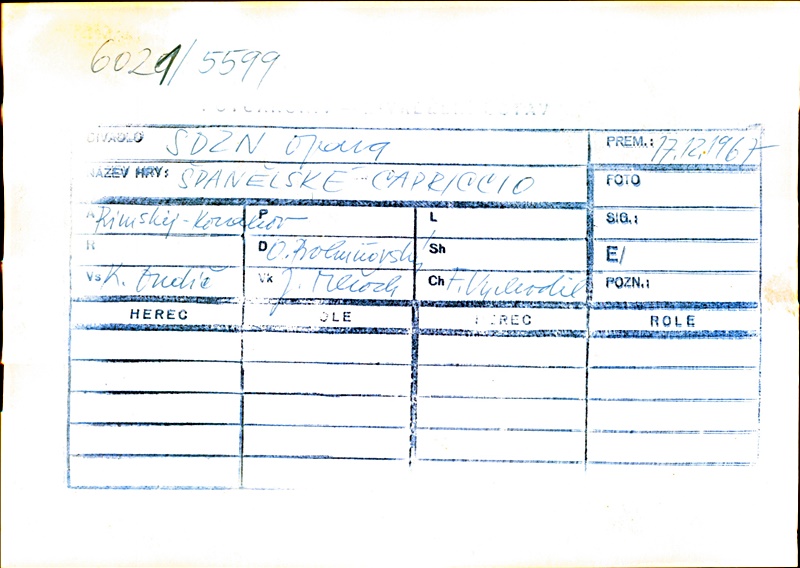 6021/5599
DIVADLO SDZN Opava PREM.: 17.12.1967
NÁZEV HRY: ŠPANĚLSKÉ CAPRICCIO FOTO
A Rimskij-Korsakov P L SIG.:
R D O. Bohuňovský Sh E/
Vs K. Ondič Vk J. Mloch Ch F. Vychodil POZN.:
HEREC ROLE HEREC ROLE